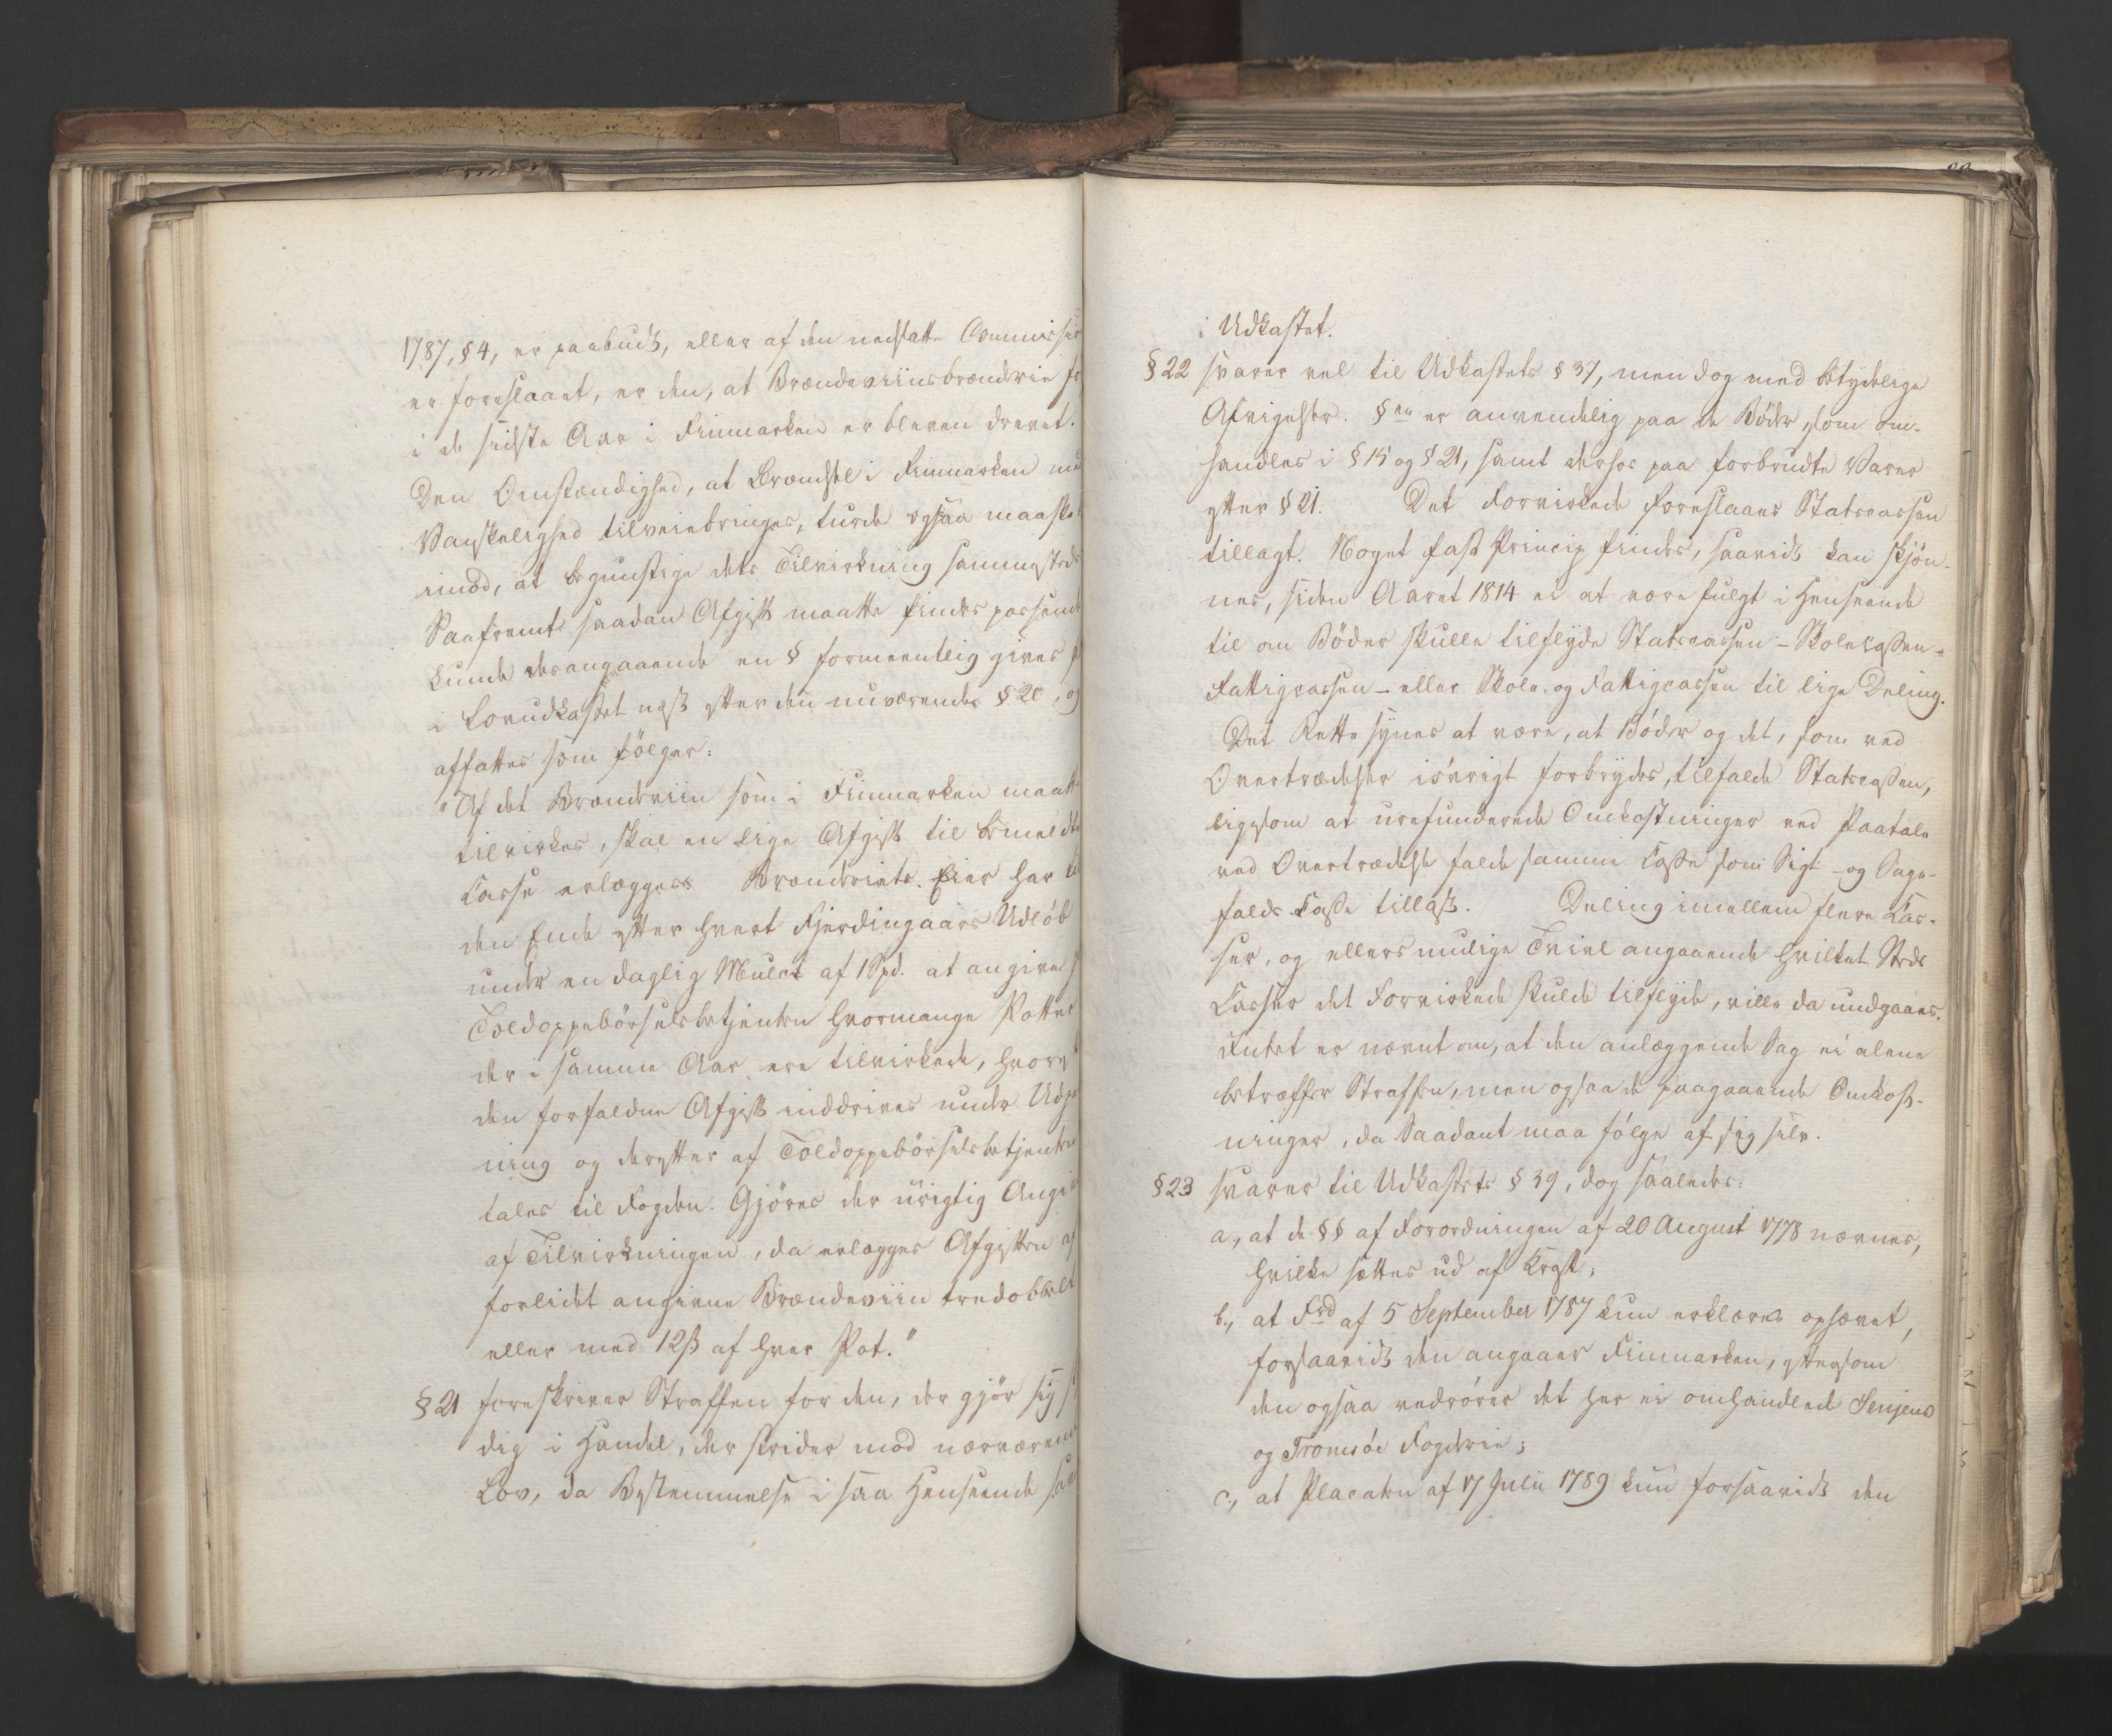 1787, § 4, er paabudt, eller af den nedsatte Commission
er foreslaaet, er den, at Brændeviinsbrænderie
i de sidste Aar i Finmarken er bleven drevet.
Den Omstændighed, at Brændsel i Finmarken med
Vanskelighed tilveiebringes, turde ogsaa maaskee
imod, at begunstige dets Tilvirkning sammesteds
Saafremt saadan Afgift maatte findes passende
kunde desangaaende en § formeentlig gives
i Lovudkastet næst efter den nuværende § 20, og
affattes som følger:
"Af det Brændeviin som i Finmarken maatte
tilvirkes, skal en lige Afgift til bemeldte
Casse erlægges. Brænderiets Eier har til
den Ende efter hvert Fjerdingaars Udløb
under en daglig Mulct af 1 Spd. at angive
Toldoppebørselsbetjenten hvormange Potter
der i samme Aar ere tilvirkede, hvorefter
den forfaldne Afgift inddrives under
ning og derefter af Toldoppebørselsbetjenten
tales til Fogden. Gjøres der urigtig
af Tilvirkningen, da erlægges Afgiften af
forlidet angivne Brændeviin tredobbelt
eller med 12 ß af hver Pot."
§ 21 foreskriver Straffen for den, der gjør sig
dig i Handel, der strider mod nærværende
Lov, da Bestemmelse i saa Henseende
i Udkastet.
§ 22 svarer vel til Udkastets § 37, men dog med betydelige
Afvigelser. §en er anvendelig paa de Bøder, som om-
handles i § 15 og § 21, samt derhos paa forbrudte Varer
efter § 21. Det Forvirkede foreslaaes Statscassen
tillagt. Noget fast Princip findes, saavidt kan skjøn-
nes, siden Aaret 1814 ei at være fulgt i Henseende
til om Bøder skulle tilflyde Statscassen - Skolecassen -
Fattigcassen - eller Skole- og Fattigcassen til lige Deling.
Det Rette synes at være, at Bøder og det, som ved
Overtrædelser iøvrigt forbrydes, tilfalde Statscassen,
ligesom at urefunderede Omkostninger ved Paatale
ved Overtrædelse falde samme Casse som Sigt- og Sage-
falds-Casse tillast. Deling imellem flere Cas-
ser, og ellers mulige Tvivl angaaende hvilket Steds
Casser det Forvirkede skulde tilflyde, ville da undgaaes.
Intet er nævnt om, at den anlæggende Sag ei alene
betræffer Straffen, men ogsaa de paagaaende Omkost-
ninger, da Saadant maa følge af sig selv.
§ 23 svarer til Udkastets § 39, dog saaledes:
a., at de §§ af Forordningen af 20 August 1778 nævnes,
hvilke sættes ud af Kraft;
b., at Frd af 5 September 1787 kun erklæres ophævet,
forsaavidt den angaaer Finmarken, eftersom
den ogsaa vedrører det her ei omhandlede Senjens
og Tromsøe Fogderie;
c., at Placaten af 17 Julii 1789 kun forsaavidt den